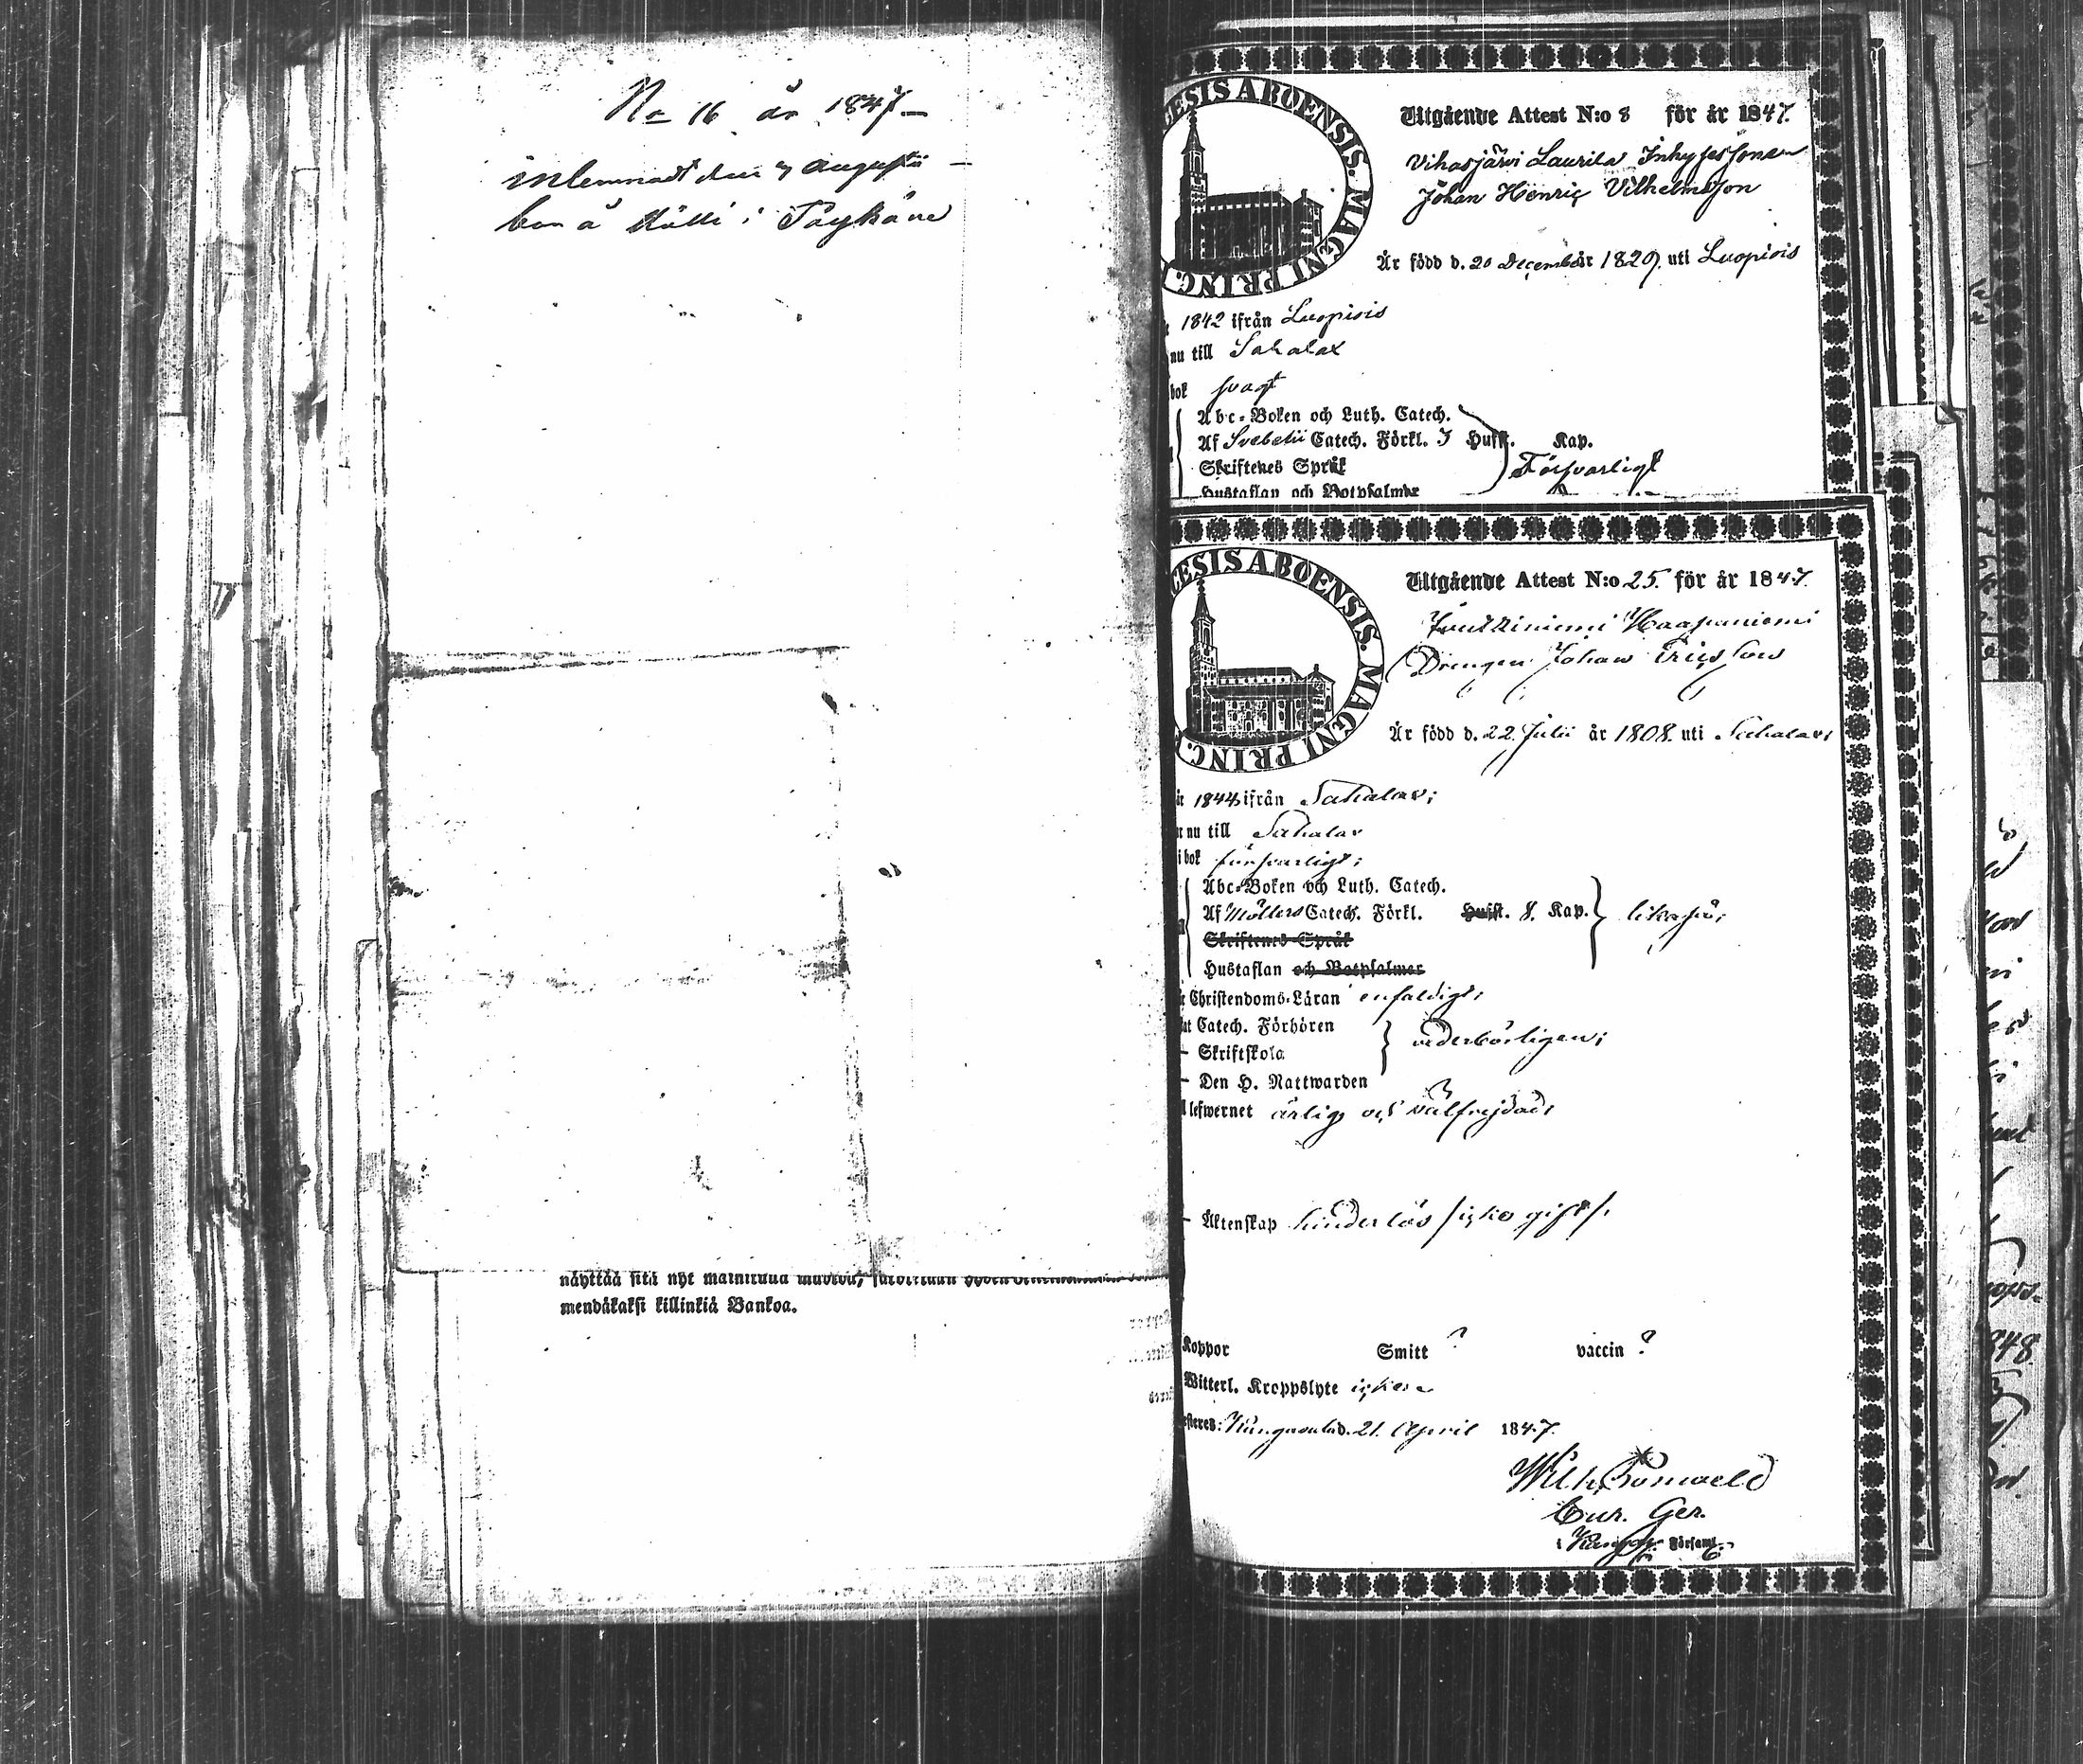 No 16 år 1847 –
inlemnadt den 7 Augusti –
bor å Mälli i Pälkäne
näyttää sitä nyt mainittua
mendäkaksi killinkiä Bankoa.
CESIS ABOENSIS. MAGNI PRINC.
Utgående Attest N:o 8 för år 1847.
Vihasjärvi Laurila Inhysessonen
Johan Henric Vilhelmsson
Är född d. 20 December år 1829. uti Luopiois
1842 ifrån Luopiois
nu till Sahalax
bok svagt
Abc-Boken och Luth. Catech.
Af Svebelii Catech. Förkl. 3 Hufst. Kap.
Skriftenes Språk
Försvarligt
Hustaflan och Botpsalmer
CESIS ABOENSIS. MAGNI PRINC.
Utgående Attest N:o 25. för år 1847.
Haapaniemi
Drengen Johan Ericsson
Är född d. 22. Julii år 1808. uti Sahalax;
år 1844 ifrån Sahalax;
nu till Sahalax
i bok försvarligt;
Abc-Boken och Luth. Catech.
Af Möllers Catech. Förkl. Hufst. 8. Kap. likaså;
Skriftenes Språk
Hustaflan och Botpsalmer
Christendoms-Läran enfaldigt;
Catech. Förhören
vederbörligen;
– Skriftskola
– Den H. Nattwarden
lefwernet ärlig och välfrejdad;
– Äktenskap hinderlös /icke gift/.
Koppor Smitt ? vaccin ?
Witterl. Kroppslyte ickese
esteres: Kangasala d. 21. April 1847.
Wilh. Bomaeld
Cur. Ger.
i Kangas. Församl.